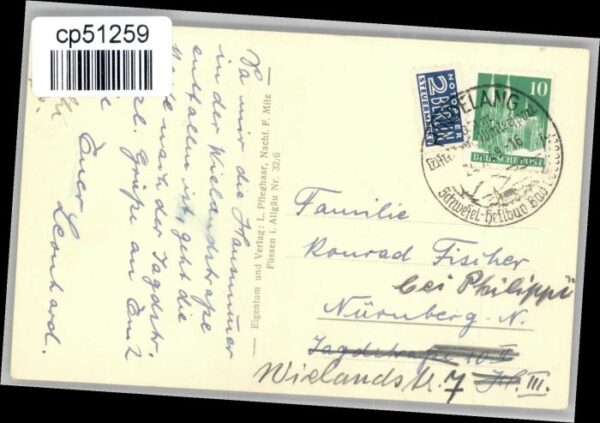 cp51259
Da mir die Hausnummer
in der Wielandstraße
entfallen ist, geht die
Karte nach der Jagdstr.
Grüße an
Euer
Leonhard.
Eigentum und Verlag: L. Pfleghaar, Nachf. F. Milz
Füssen i. Allgäu Nr. 32/6
NOTOPFER
2 BERLIN
STEUERMARKE
10
DEUTSCHE POST
Schwefel-Heilbad
Familie
Konrad Fischer
bei Philippi
Nürnberg-N.
Jagdstraße 10 II
Wielandstr. 7 III.